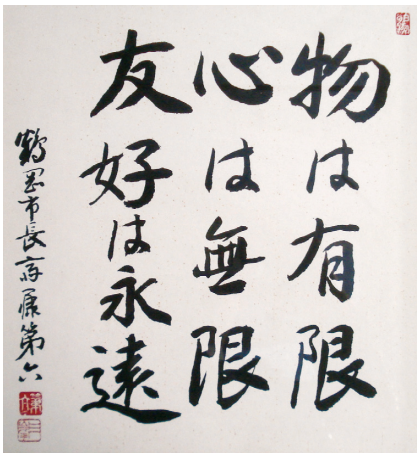 物は有限
心は無限
友好は永遠
鶴岡市長斎藤第六